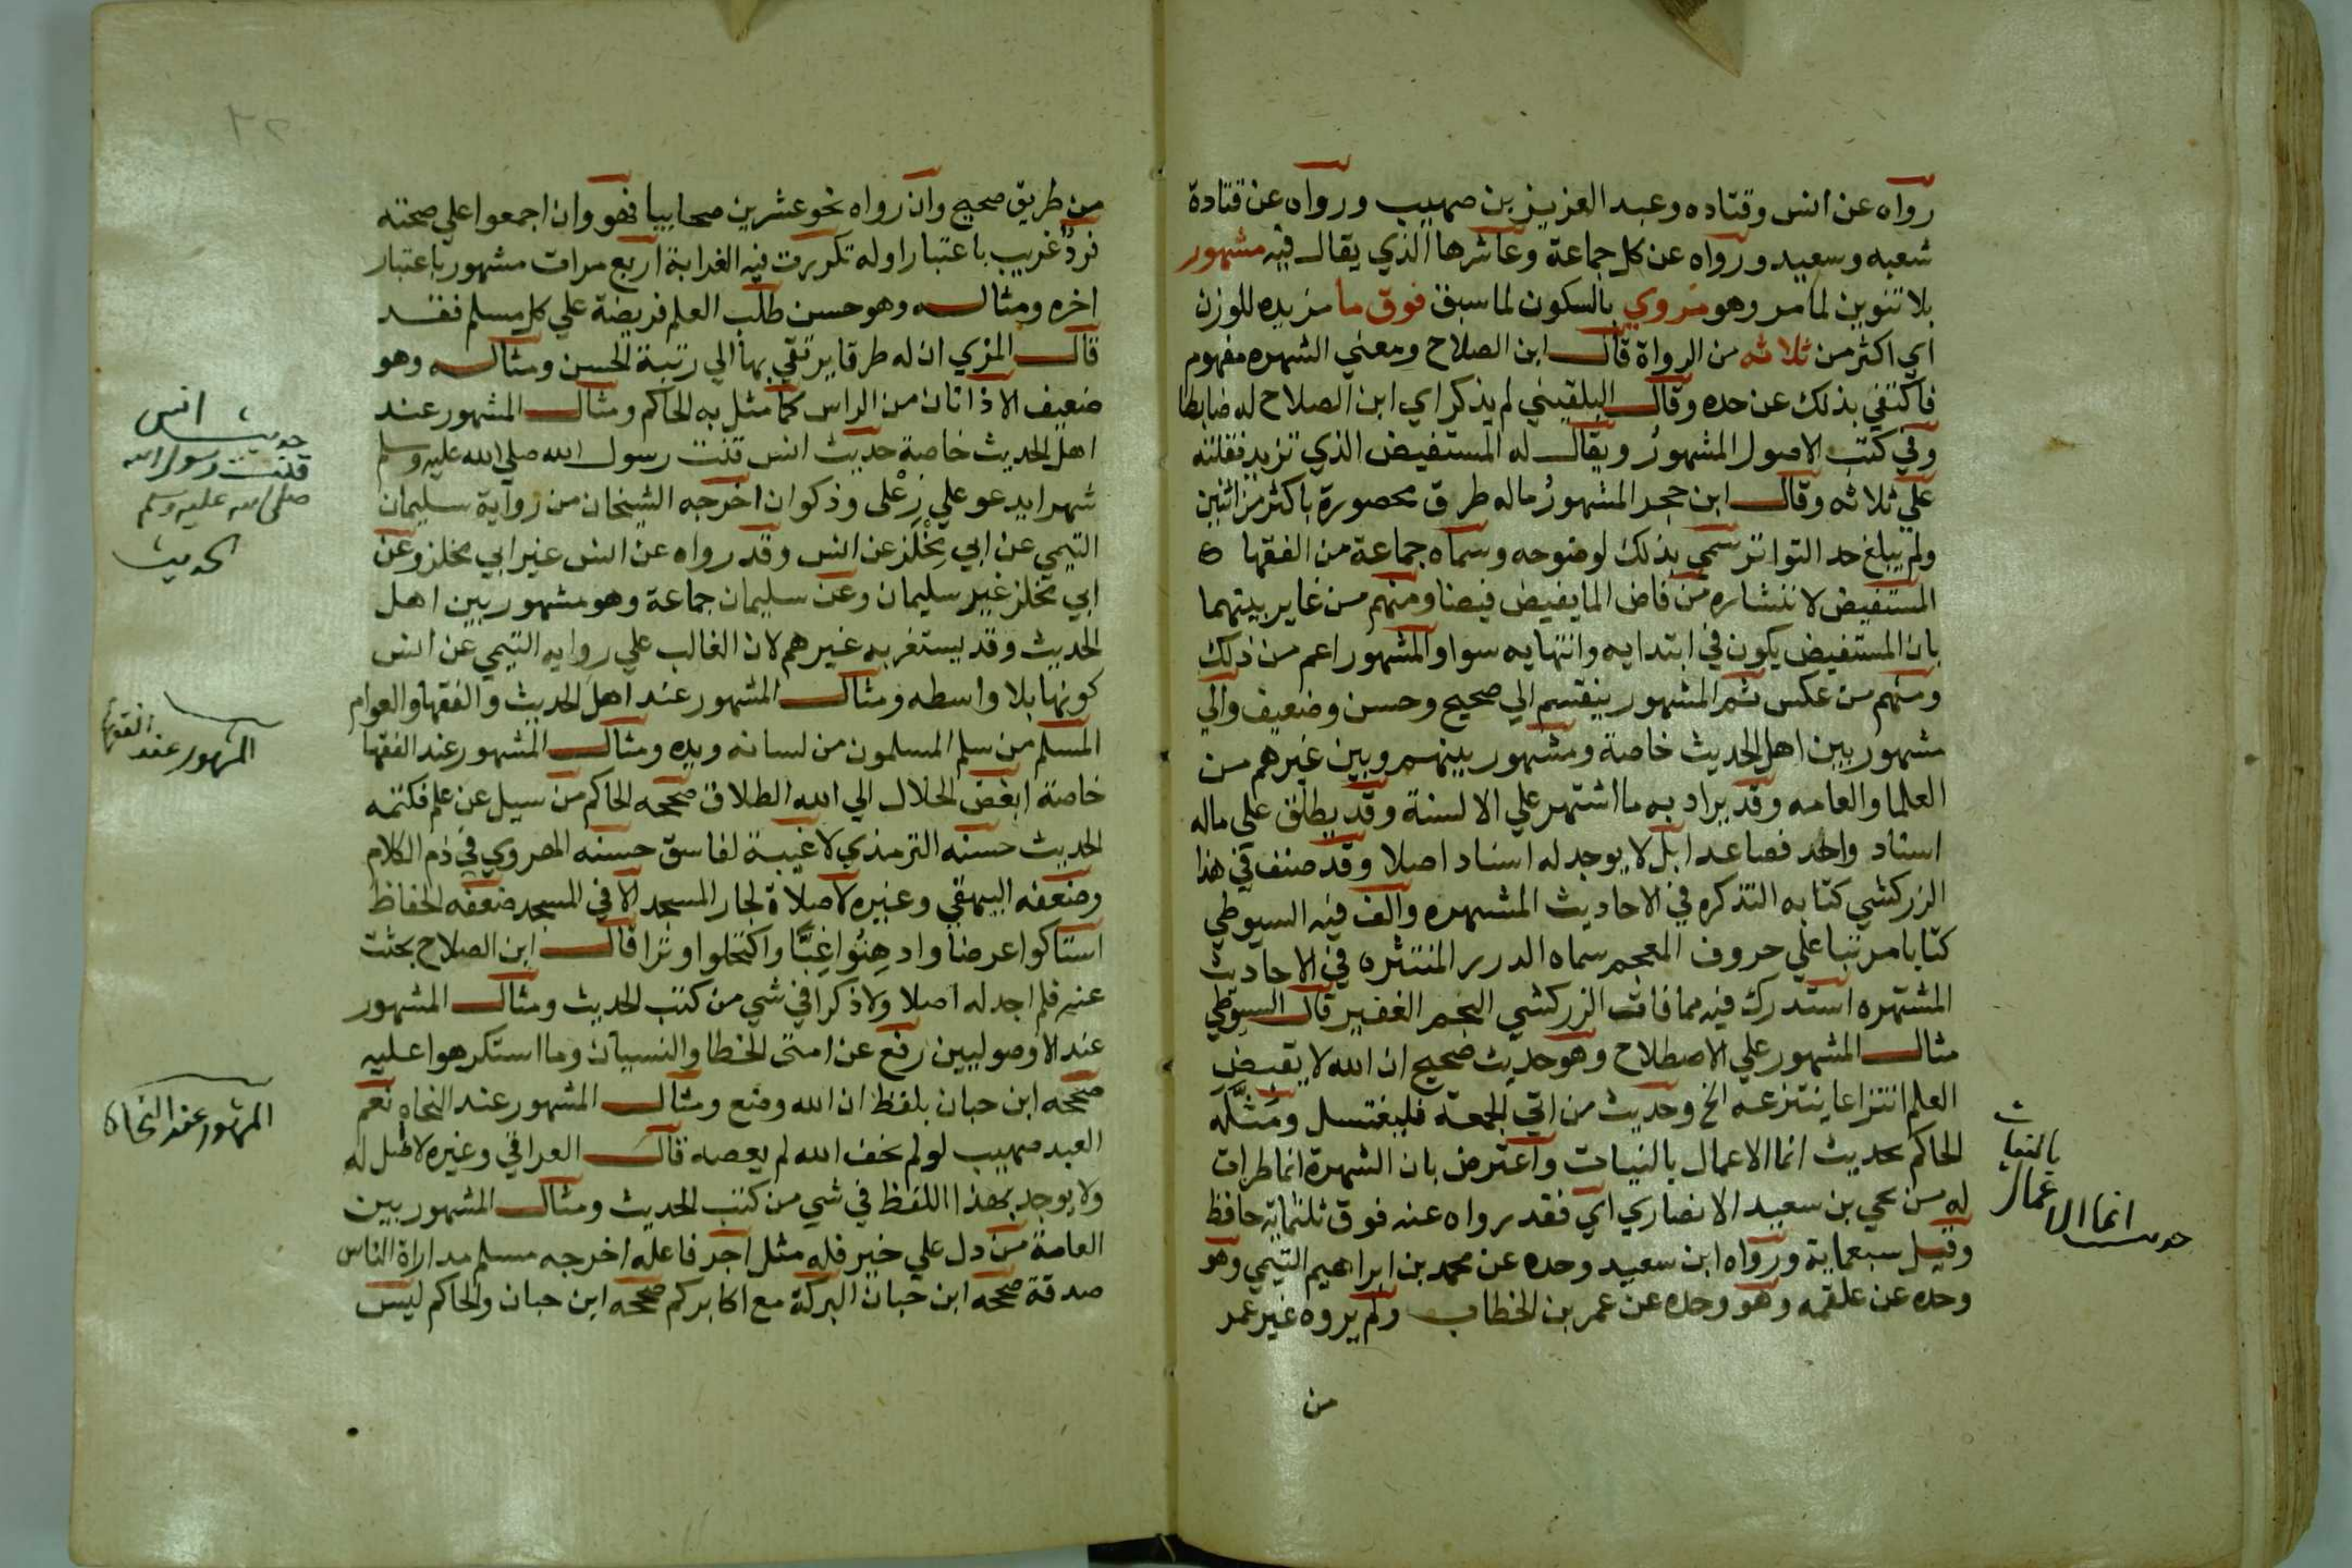 رواه عن انس وقتاده وعبد العزيز بن صهيب ورواه عن قتادة
شعبه وسعيد ورواه عن كل جماعة وعاشرها الذي يقال فيه مشهور
بلا تنوين لما مر وهو مروي بالسكون لما سبق فوق ما مزيده للوزن
اي اكثر من ثلاثه من الرواة قال ابن الصلاح ومعني الشهره مفهوم
فاكتفي بذلك عن حده وقال البلقيني لم يذكر اي ابن الصلاح له ضابطا
وفي كتب الاصول المشهور ويقال له المستفيض الذي تزيد نقلته
علي ثلاثه وقال ابن حجر المشهور ماله طرق محصورة باكثر من اثنين
ولم يبلغ حد التواتر سمي بذلك لوضوحه وسماه جماعة من الفقها
المستفيض لانتشاره من فاض الما يفيض فيضا ومنهم من غاير بينهما
بان المستفيض يكون في ابتدايه وانتهايه سوا والمشهور اعم من ذلك
ومنهم من عكس ثم المشهور ينقسم الي صحيح وحسن وضعيف والي
مشهور بين اهل الحديث خاصة ومشهور بينهم وبين غيرهم من
العلما والعامه وقد يراد به ما اشتهر علي الالسنة وقد يطلق علي ماله
اسناد واحد فصاعدا بل لا يوجد له اسناد اصلا وقد صنف في هذا
الزركشي كتابه التذكره في الاحاديث المشهره والف فيه السيوطي
كتابا مرتبا علي حروف المعجم سماه الدرر المنتثره في الاحاديث
المشتهره استدرك فيه مما فات الزركشي الجم الغفير قال السيوطي
مثال المشهور علي الاصطلاح وهو حديث صحيح ان الله لا يقبض
العلم انتزاعا ينتزعه الخ وحديث من اتي الجمعة فليغتسل ومثله
الحاكم بحديث انما الاعمال بالنيات واعترض بان الشهرة انما طرات
له من يحي بن سعيد الانصاري اي فقد رواه عنه فوق ثلثماية حافظ
وقيل سبعماية ورواه ابن سعيد وحده عن محمد بن ابراهيم التيمي وهو
وحده عن علقمه وهو وحده عن عمر بن الخطاب ولم يروه غير عمر
من
حديث انما الاعمال
بالنيات
من طريق صحيح وان رواه نحو عشرين صحابيا فهو وان اجمعوا علي صحته
فرد غريب باعتبار اوله تكررت فيه الغرابة اربع مرات مشهور باعتبار
اخره ومثاله وهو حسن طلب العلم فريضة علي كل مسلم فقد
قال المزي ان له طرقا يرتقي بها الي رتبة الحسن ومثاله وهو
ضعيف الاذانان من الراس كما مثل به الحاكم ومثال المشهور عند
اهل الحديث خاصة حديث انس قنت رسول الله صلي الله عليه وسلم
شهرا يدعو علي رعلى وذكوان اخرجه الشيخان من رواية سليمان
التيمي عن ابي مخلز عن انس وقد رواه عن انس غير ابي مخلز وعن
ابي مخلز غير سليمان وعن سليمان جماعة وهو مشهور بين اهل
الحديث وقد يستغربه غيرهم لان الغالب علي روايه التيمي عن انس
كونها بلا واسطه ومثال المشهور عند اهل الحديث والفقها والعوام
المسلم من سلم المسلمون من لسانه ويده ومثال المشهور عند الفقها
خاصة ابغض الحلال الي الله الطلاق صححه الحاكم من سيل عن علم فكتمه
الحديث حسنه الترمذي لا غيبة لفاسق حسنه الهروي في ذم الكلام
وضعفه البيهقي وغيره لا صلاة لجار المسجد الا في المسجد ضعفه الحفاظ
استاكوا عرضا وادهنوا غبا واكتحلوا وترا قال ابن الصلاح بحثت
عنه فلم اجد له اصلا ولا ذكرا في شي من كتب الحديث ومثال المشهور
عند الاوصوليين رفع عن امتي الخطا والنسيان وما استكرهوا عليه
صححه ابن حبان بلفظ ان الله وضع ومثال المشهور عند النحاه نعم
العبد صهيب لو لم يخف الله لم يعصه قال العراقي وغيره لا اصل له
ولا يوجد بهذا اللفظ في شي من كتب الحديث ومثال المشهور بين
العامة من دل علي خير فله مثل اجر فاعله اخرجه مسلم مداراة الناس
صدقة صححه ابن حبان البركة مع اكابركم صححه ابن حبان والحاكم ليس
حديث انس
قنت رسول الله
صلى الله عليه وسلم
الحديث
المشهور عند الفقها
المشهور عند النحاة
٢٢